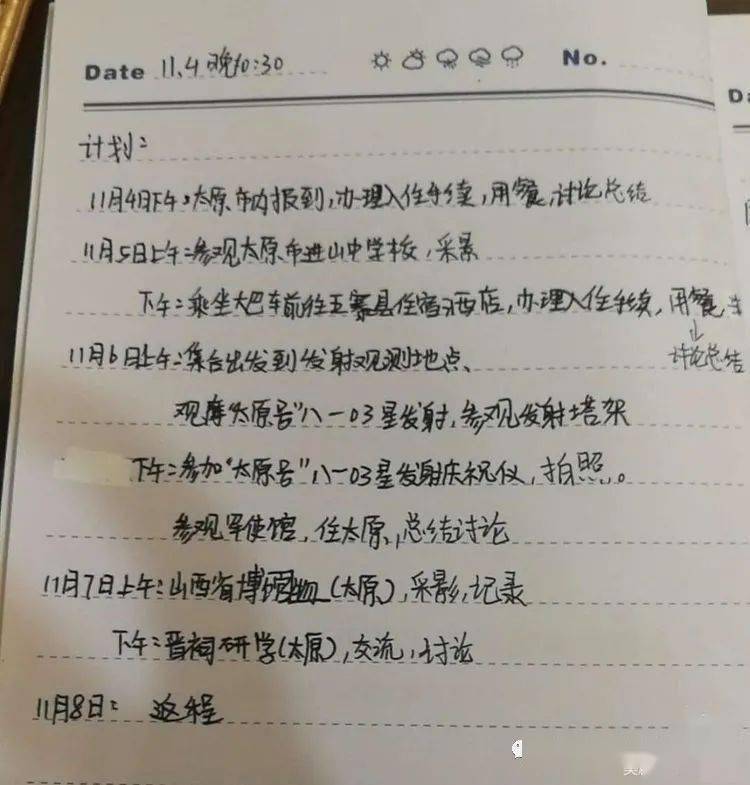 Date 11.4 晚10:30 No.
计划:
11月4日下午:太原市内报到,办理入住手续,用餐,讨论总结
11月5日上午:参观太原市进山中学校,采景
下午:乘坐大巴车前往五寨县住宿酒店,办理入住手续,用餐,
↓
讨论总结
11月6日上午:集合出发到发射观测地点、
观摩"太原号"八一03星发射,参观发射塔架
下午:参加"太原号"八一03星发射庆祝仪,拍照。
参观军使馆,住太原,总结讨论
11月7日上午:山西省博物(太原),采影,记录
下午:晋祠研学(太原),交流,讨论
11月8日: 返程